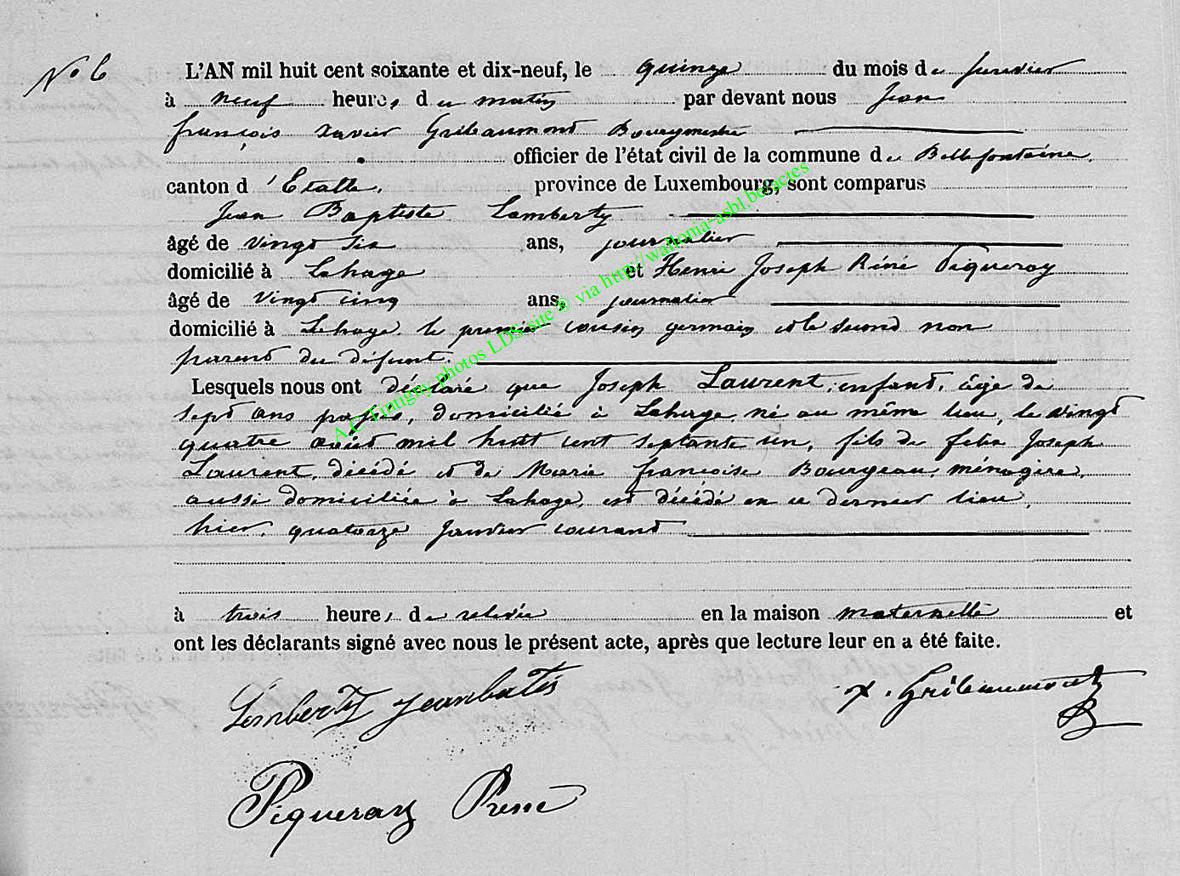 No 6
L'AN mil huit cent soixante et dix-neuf, le quinze du mois de janvier
à neuf heures du matin par devant nous Jean
françois Xavier Gribaumont Bourgmestre
officier de l'état civil de la commune de Bellefontaine,
canton d'Etalle, province de Luxembourg, sont comparus
Jean Baptiste Lamberty
âgé de vingt six ans, journalier
domicilié à Lahage et Henri Joseph Réné Piqueray
âgé de vingt cinq ans, journalier
domicilié à Lahage le premier cousin germain et le second non
parent du défunt.
Lesquels nous ont déclaré que Joseph Laurent, enfant, âgé de
sept ans passés, domicilié à Lahage né au même lieu, le vingt
quatre août mil huit cent septante un, fils de felix Joseph
Laurent, décédé et de Marie françoise Bourgeau, ménagère,
aussi domiciliée à Lahage, est décédé en ce dernier lieu,
hier, quatorze janvier courant
à trois heures de relevée en la maison maternelle et
ont les déclarants signé avec nous le présent acte, après que lecture leur en a été faite.
Lamberty jeanbatis X. Gribaumont
B
Piqueray René
A.E. Tintigny photos LDS site © via http://wallonia-asbl.be/actes